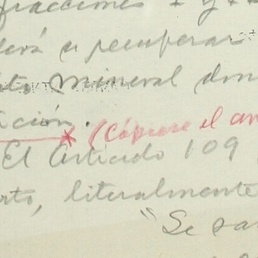 fracciones I y
a recuperar
mineral don
ción. * (Cópiese el ar
El Artículo 109
rto, literalmente
"Se sa